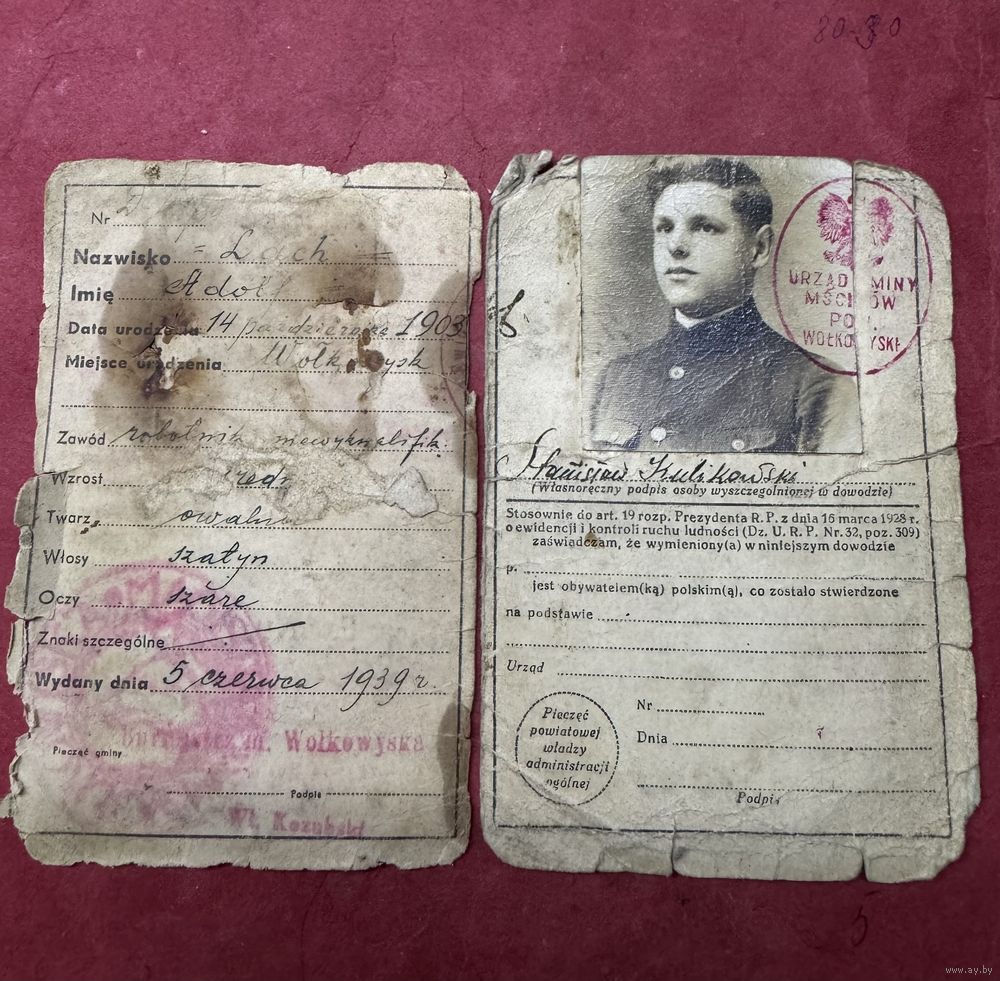 80-30
Nr
Nazwisko = Lach =
Imię Adolf
Data urodzenia 14 października 1903
Miejsce urodzenia Wołkowysk
Zawód robotnik niewykwalifik.
Wzrost
Twarz owalna
Włosy szatyn
Oczy szare
Znaki szczególne
Wydany dnia 5 czerwca 1939 r.
Pieczęć gminy
Burmistrz m. Wołkowyska
Podpis
URZĄD GMINY
MŚCIBÓW
POW.
WOŁKOWYSKI
Stanisław Kulikowski
(Własnoręczny podpis osoby wyszczególnionej w dowodzie)
Stosownie do art. 19 rozp. Prezydenta R. P. z dnia 16 marca 1928 r.
o ewidencji i kontroli ruchu ludności (Dz. U. R. P. Nr. 32, poz. 309)
zaświadczam, że wymieniony(a) w niniejszym dowodzie
p.
jest obywatelem(ką) polskim(ą), co zostało stwierdzone
na podstawie
Urząd
Pieczęć
powiatowej
władzy
administracji
ogólnej
Nr
Dnia
Podpis
5
www.ay.by